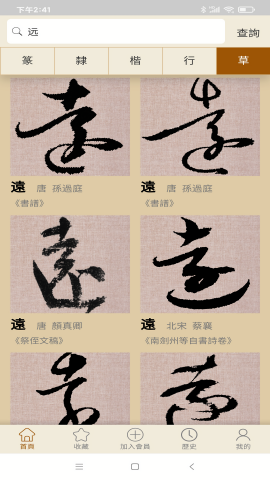 下午2:41
远
查詢
篆 隸 楷 行 草
遠 唐 孫過庭
《書譜》
遠 唐 孫過庭
《書譜》
遠 唐 顏真卿
《祭侄文稿》
遠 北宋 蔡襄
《南剑州等自書詩卷》
首頁 收藏 加入會員 歷史 我的